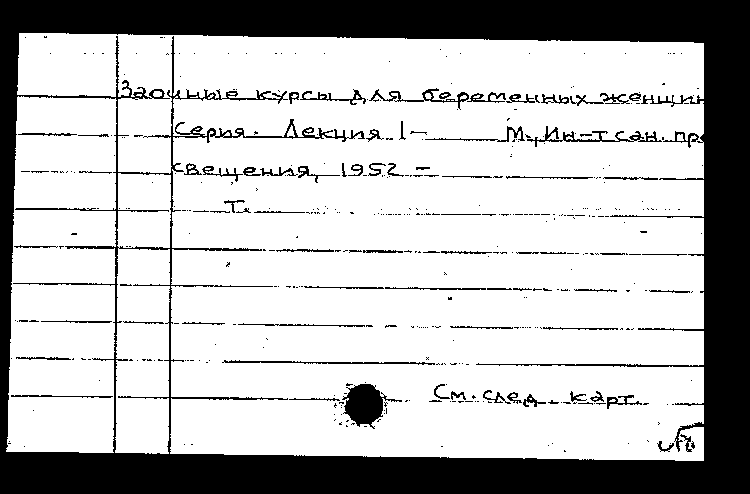 Заочные курсы для беременных женщин
Серия. Лекция 1- М., Ин-т сан. про
свещения, 1952 -
Т.
См. след. карт.